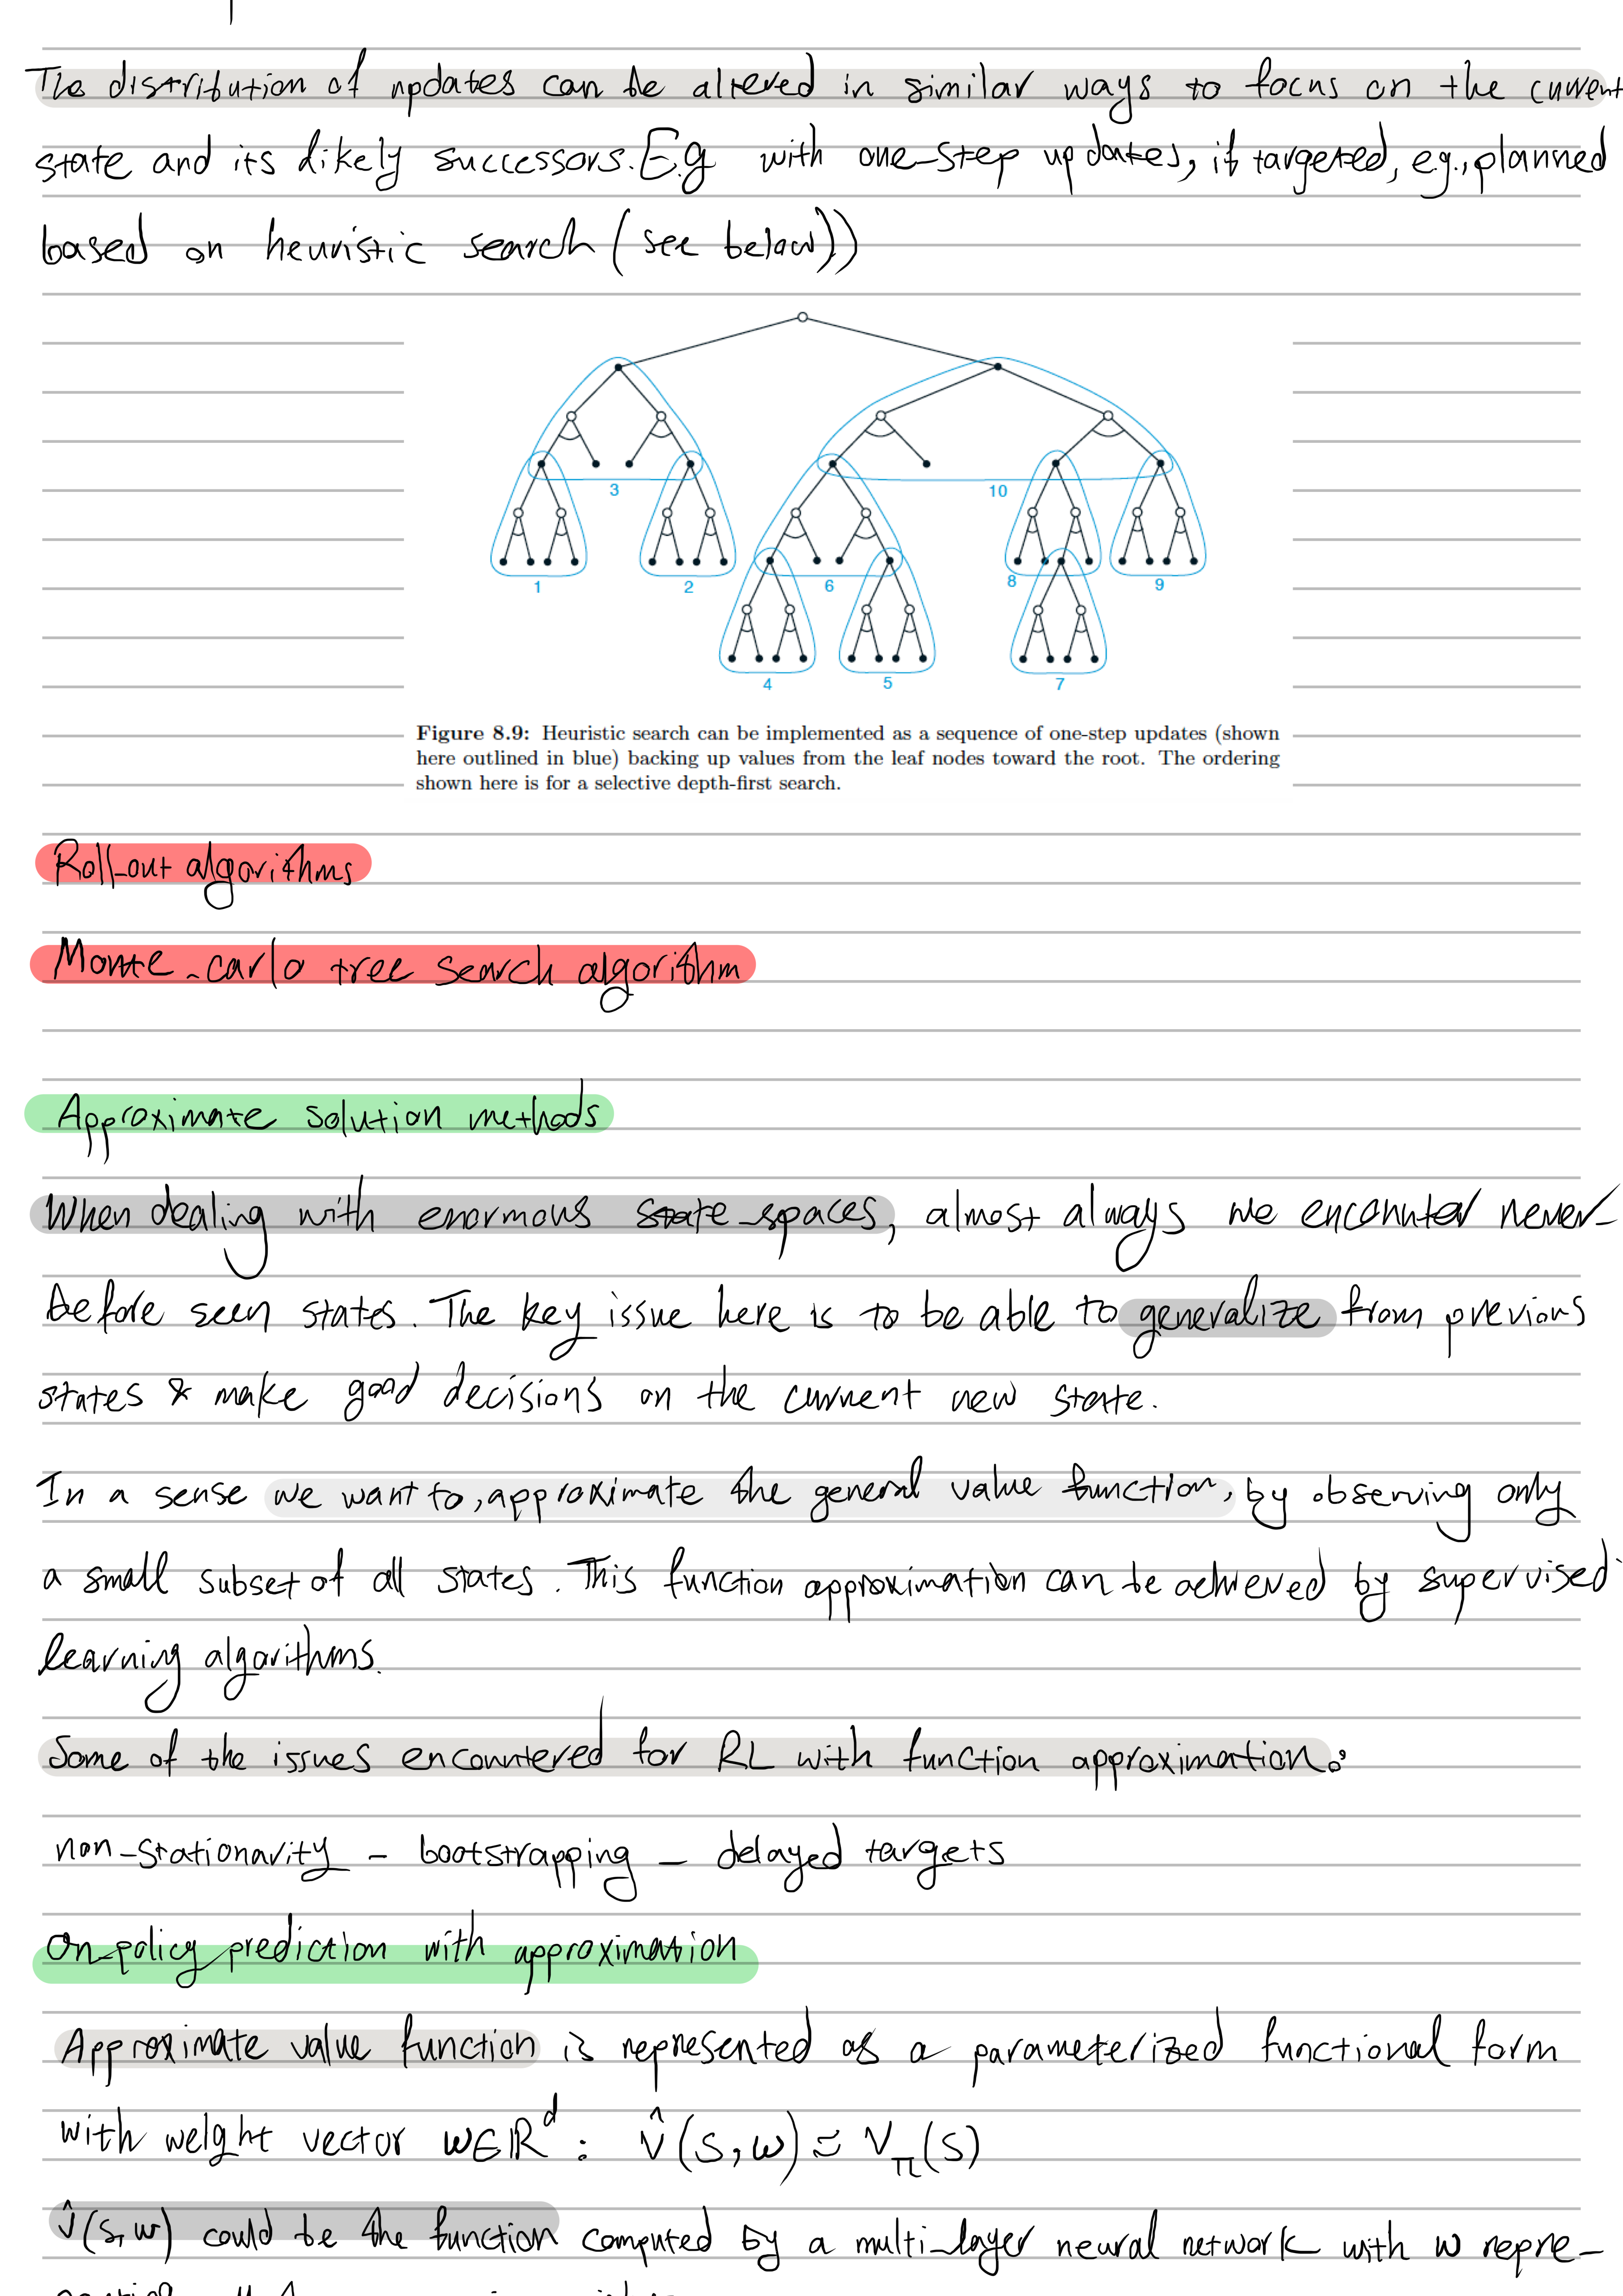 The distribution of updates can be altered in similar ways to focus on the current
state and its likely successors. E.g with one-step updates, if targeted, e.g., planned
based on heuristic search (see below))
3
10
1
2
6
8
9
4
5
7
Figure 8.9: Heuristic search can be implemented as a sequence of one-step updates (shown
here outlined in blue) backing up values from the leaf nodes toward the root. The ordering
shown here is for a selective depth-first search.
Roll-out algorithms
Monte-carlo tree search algorithm
Approximate solution methods
When dealing with enormous state-spaces, almost always we encounter never-
before seen states. The key issue here is to be able to generalize from previous
states & make good decisions on the current new state.
In a sense we want to, approximate the general value function, by observing only
a small subset of all states. This function approximation can be achieved by supervised
learning algorithms.
Some of the issues encountered for RL with function approximation:
non-stationarity - bootstrapping - delayed targets
On-policy prediction with approximation
Approximate value function is represented as a parameterized functional form
with weight vector w∈ℝ^d : v̂(s,w) ≈ v_π(s)
v̂(s,w) could be the function computed by a multi-layer neural network with w repre-